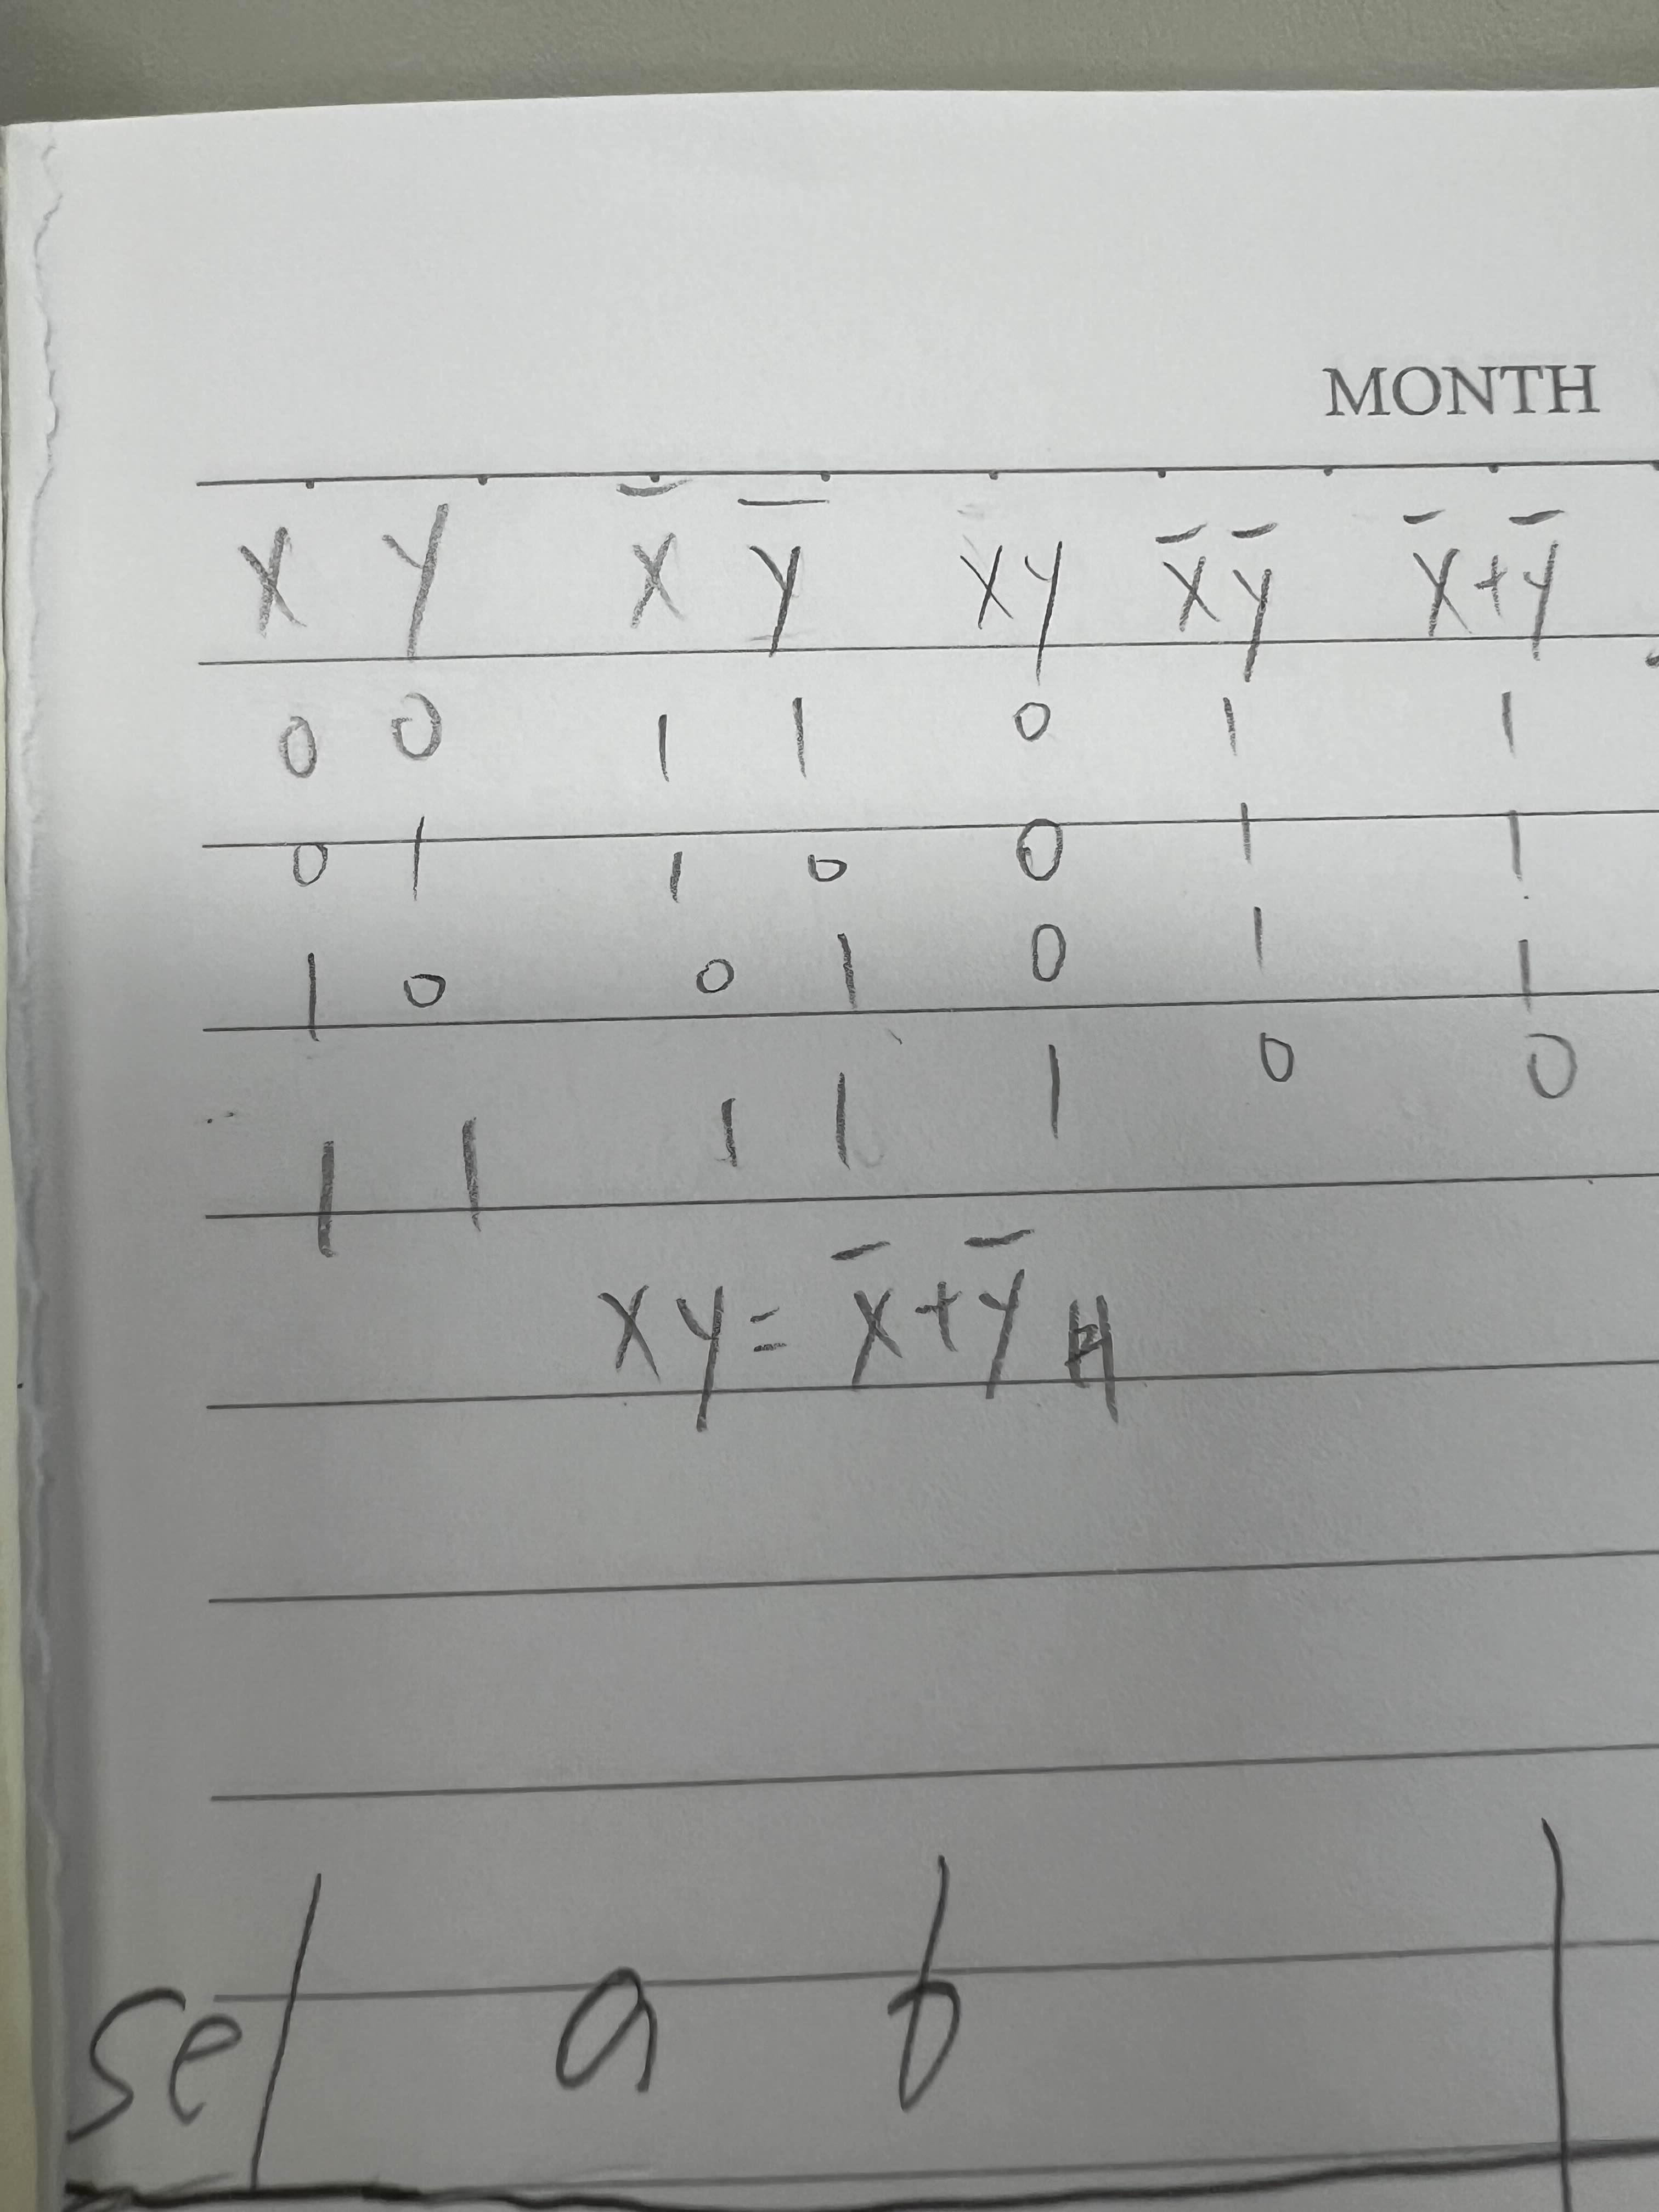 MONTH
x y x̄ ȳ xy x̄ȳ x̄+ȳ
0 0 1 1 0 1 1
0 1 1 0 0 1 1
1 0 0 1 0 1 1
1 1 1 1 1 0 0
xy = x̄+ȳ
sel a b